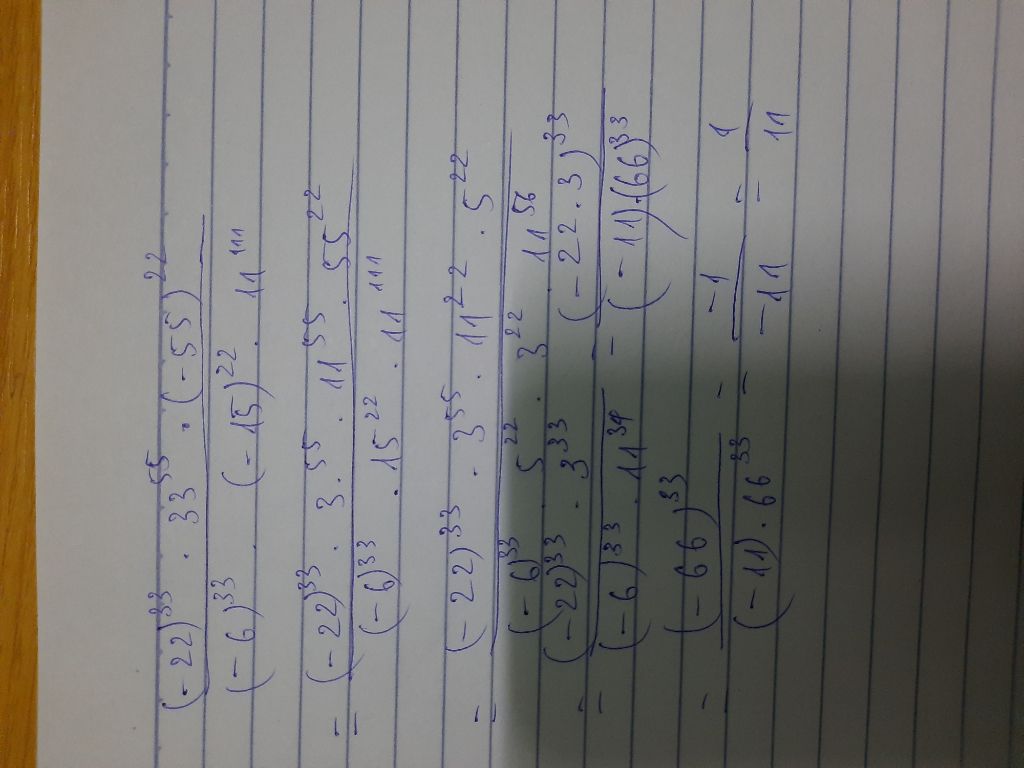 (-22)^33 · 33^55 · (-55)^22
(-6)^33 · (-15)^22 · 11^111
= (-22)^33 · 3·^55 · 11^55 · 55^22
(-6)^33 · 15^22 · 11^111
= (-22)^33 · 3^55 · 11^22 · 5^22
(-6)^33 · 5^22 · 3^22 · 11^56
= (-22)^33 · 3^33 = (-22·3)^33
(-6)^33 · 11^34 (-11)·(66)^33
= (-66)^33 = -1 = 1
(-11)·66^33 -11 11